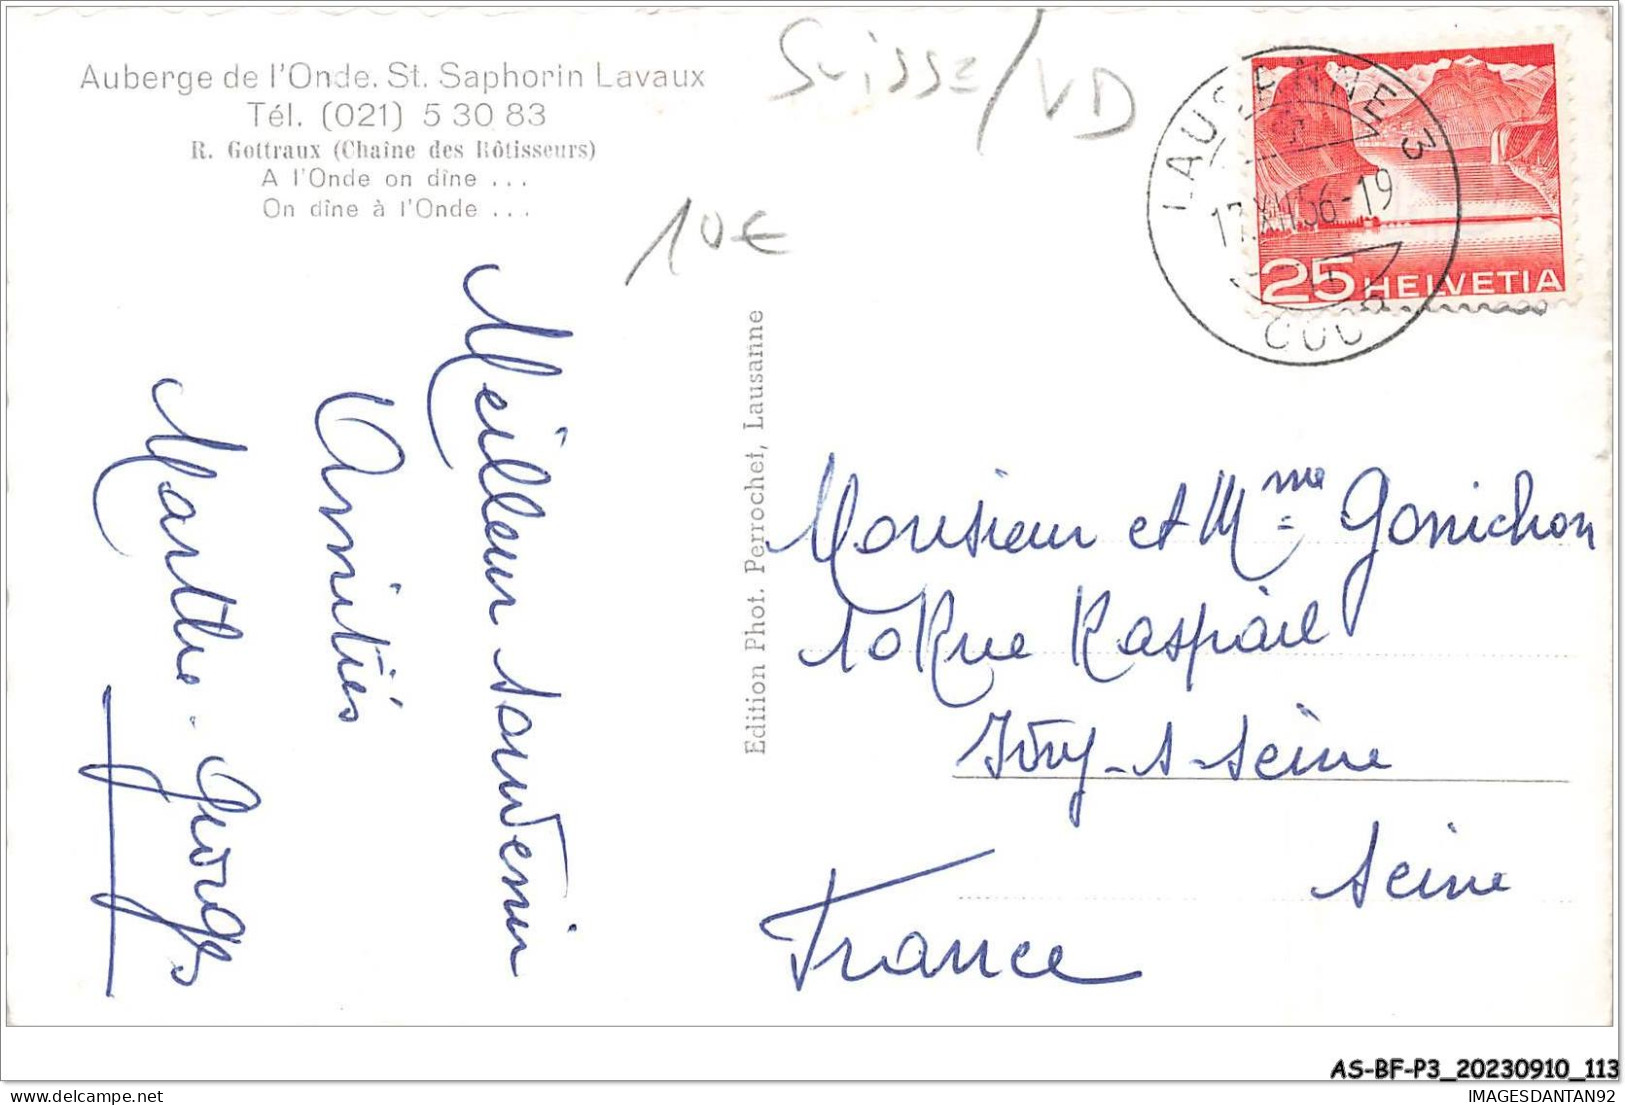 Auberge de l'Onde. St. Saphorin Lavaux
Tél. (021) 5 30 83
R. Gottraux (Chaîne des Rôtisseurs)
A l'Onde on dîne ...
On dîne à l'Onde ...
Suisse/VD
10€
LAUSANNE 3
17.XII.56-19
COUR
25 HELVETIA
Meilleur souvenir
Amitiés
Marthe - Georges
Edition Phot. Perrochet, Lausanne
Monsieur et Mme Gonichon
10 Rue Raspail
Ivry-s-Seine
Seine
France
AS-BF-P3_20230910_113
IMAGESDANTAN92